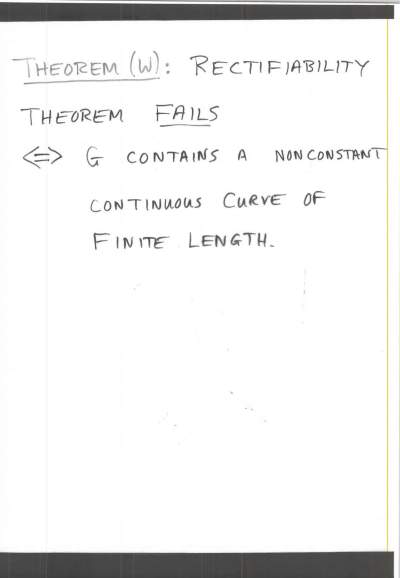 THEOREM (W): RECTIFIABILITY
THEOREM FAILS
<=> G CONTAINS A NONCONSTANT
CONTINUOUS CURVE OF
FINITE LENGTH.